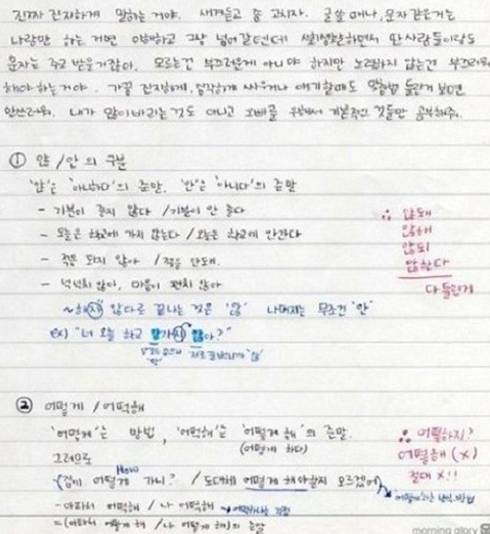 진짜 진지하게 말하는 거야. 새겨듣고 좀 고치자. 글쓸 때나, 문자 같은거는
나랑만 하는 거면 이해하고 그냥 넘어갈텐데 사람들이랑도
문자는 주고 받을거잖아. 모르는건 부끄러운게 아니야 하지만 노력하지 않는건 부끄러워
해야 하는거야. 가끔 진지하게, 싸우거나 얘기할때도 맞춤법 틀린거 보면
안쓰러워. 내가 많이 바라는것도 아니고 오빠를 위해서 기본적인 것들만 공부해줘.
① 않/안 의 구분
'않'은 '아니하다'의 준말, '안'은 '아니다'의 준말
- 기분이 좋지 않다 / 기분이 안 좋다
- 오늘은 학교에 가지 않는다 / 오늘은 학교에 안간다
- 적용 되지 않아 / 적용 안돼.
- 넉넉치 않아, 마음이 편치 않아
∴ 않돼
않해
않되
않한다
다 틀린거
~하지 않다로 끝나는 것은 '않' 나머지는 무조건 '안'
ex) "너 오늘 학교 안가지 않아?"
② 어떻게 / 어떡해
'어떻게'는 방법, '어떡해'는 '어떻게 해'의 준말.
(어떻게 하다)
그러므로
How
(집에 어떻게 가니? / 도대체 어떻게 해야할지 모르겠어)
- 아파서 어떡해 / 나 어떡해
= (아파서 어떻게 해 / 나 어떻게 해)의 준말
∴ 어떡하지?
어떻해 (x)
절대 x!!
morning glory